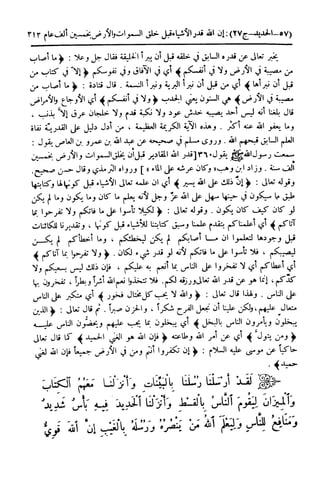 (٥٧-الحديد-ج٢٧): إن الله قدر الأشياء قبل خلق السموات والأرض بخمسين ألف عام ٣١٣
يخبر تعالى عن قدره السابق في خلقه قبل أن يبرأ الخليقة فقال جل وعلا : ﴿ ما أصاب
من مصيبة في الأرض ولا في أنفسكم ﴾ أي في الآفاق وفي نفوسكم ﴿ إلا في كتاب من
قبل أن نبرأها ﴾ أي من قبل أن نبرأ البرية ونبرأ النسمة . قال قتادة : ﴿ ما أصاب من
مصيبة في الأرض ﴾ هي السنون يعني الجدب ﴿ ولا في أنفسكم ﴾ أي الأوجاع والأمراض
قال بلغنا أنه ليس أحد يصيبه خدش عود ولا نكبة قدم ولا خلجان عرق إلا بذنب ،
وما يعفو الله عنه أكثر . وهذه الآية الكريمة العظيمة ، من أدل دليل على القدرية نفاة
العلم السابق قبحهم الله . وروى مسلم في صحيحه عن عبد الله بن عمرو بن العاص يقول :
سمعت رسول الله ﷺ يقول ٣٦٠» قدر الله المقادير قبل أن يخلق السموات والأرض بخمسين
ألف سنة . وزاد ابن وهب» وكان عرشه على الماء « ورواه الترمذي وقال حسن صحيح .
وقوله تعالى : ﴿ إن ذلك على الله يسير ﴾ أي ان علمه تعالى الأشياء قبل كونها وكتابتها
طبق ما سيكون في حينها سهل على الله عز وجل لأنه يعلم ما كان وما يكون وما لم يكن
لو كان كيف كان يكون . وقوله تعالى : ﴿ لكيلا تأسوا على ما فاتكم ولا تفرحوا بما
آتاكم ﴾ أي أعلمناكم بتقدم علمنا وسبق كتابتنا للأشياء قبل كونها ، وتقديرنا للكائنات
قبل وجودها لتعلموا ان ما أصابكم لم يكن ليخطئكم ، وما أخطأكم لم يكن
ليصيبكم ، فلا تأسوا على ما فاتكم لأنه لو قدر شيء لكان . ﴿ ولا تفرحوا بما آتاكم ﴾
أي أعطاكم أي لا تفخروا على الناس بما أنعم به عليكم ، فإن ذلك ليس بسعيكم ولا
كدكم ، إنما هو عن قدر الله تعالى ورزقه لكم . فلا تتخذوا نعم الله أشراً وبطراً ، تفخرون بها
على الناس . ولهذا قال تعالى : ﴿ والله لا يحب كل مختال فخور ﴾ أي متكبر على الناس
متعال عليهم ، ولكن علينا أن نجعل الفرح شكراً ، والحزن صبراً . ثم قال تعالى : ﴿ الذين
يبخلون ويأمرون الناس بالبخل ﴾ أي يبخلون بما يجب عليهم ويحضون الناس عليه
﴿ ومن يتول ﴾ أي عن أمر الله وطاعته ﴿ فإن الله هو الغني الحميد ﴾ كما قال تعالى
حاكياً عن موسى عليه السلام : ﴿ إن تكفروا أنتم ومن في الأرض جميعاً فإن الله لغني
حميد ﴾ .
لَقَدْ أَرْسَلْنَا رُسُلَنَا بِالْبَيِّنَاتِ وَأَنزَلْنَا مَعَهُمُ الْكِتَابَ
وَالْمِيزَانَ لِيَقُومَ النَّاسُ بِالْقِسْطِ وَأَنزَلْنَا الْحَدِيدَ فِيهِ بَأْسٌ شَدِيدٌ
وَمَنَافِعُ لِلنَّاسِ وَلِيَعْلَمَ اللَّهُ مَن يَنصُرُهُ وَرُسُلَهُ بِالْغَيْبِ إِنَّ اللَّهَ قَوِيٌّ